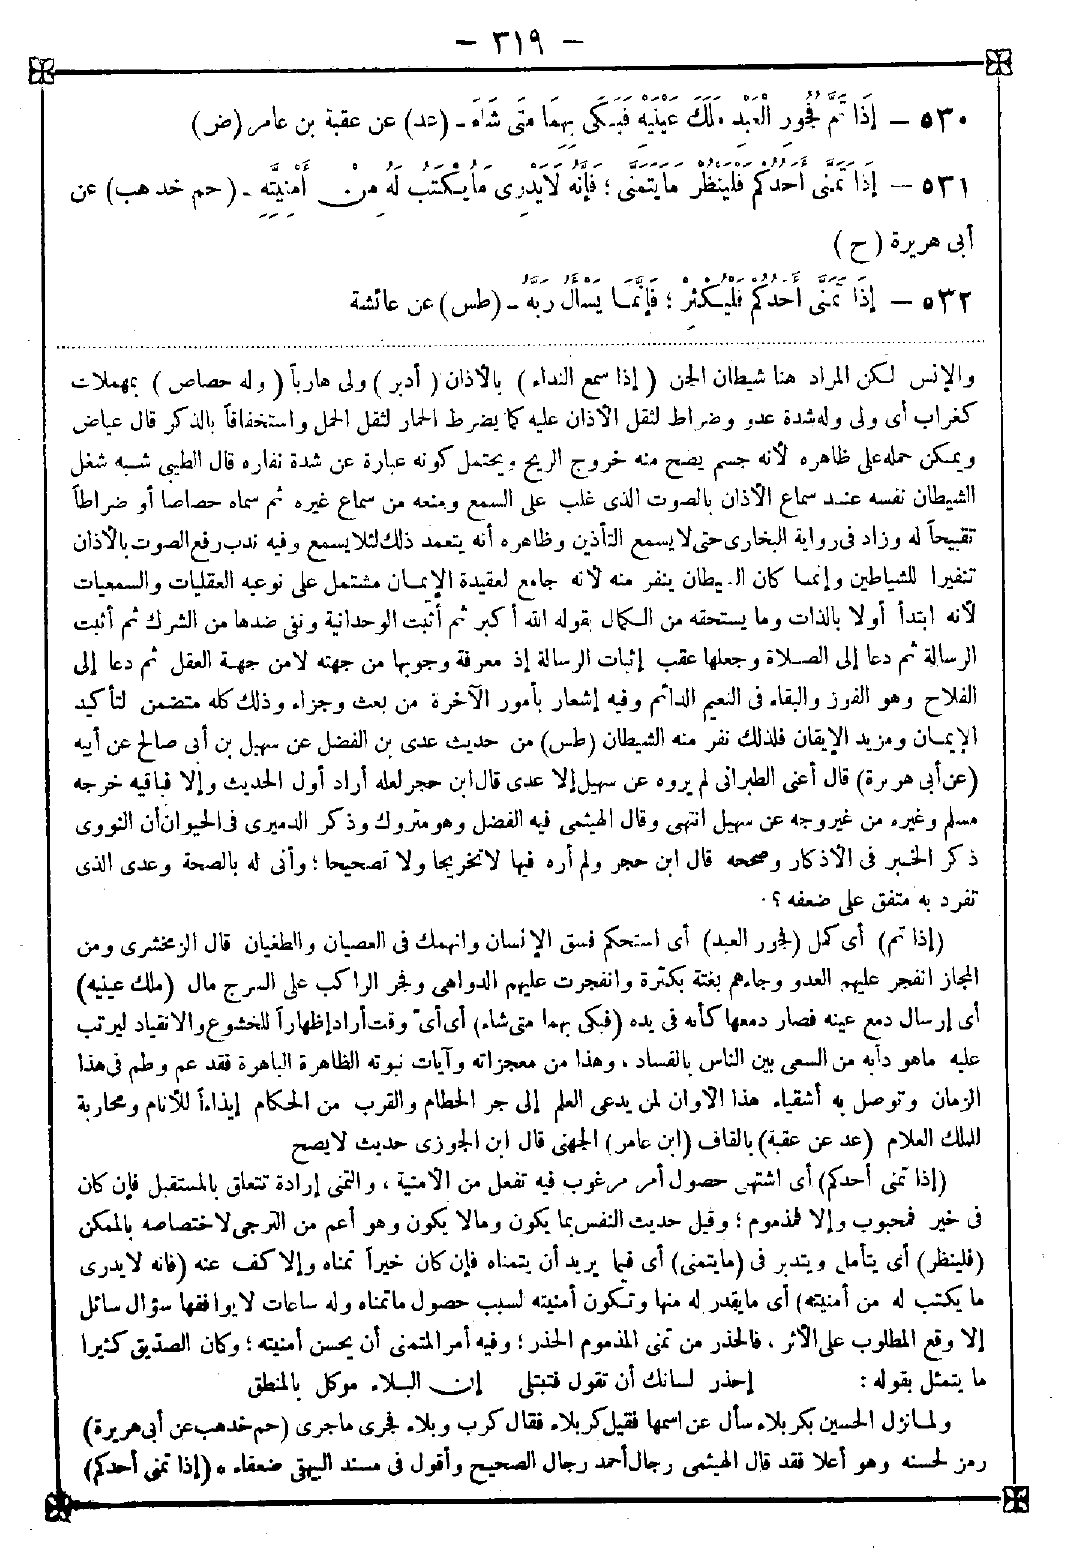 — ٣١٩ —
٥٣٠ — إِذَا تَمَّ فُجُورُ الْعَبْدِ مَلَكَ عَيْنَيْهِ فَبَكَى بِهِمَا مَتَى شَاءَ ـ (عد) عن عقبة بن عامر (ض)
٥٣١ — إِذَا تَمَنَّى أَحَدُكُمْ فَلْيَنْظُرْ مَا يَتَمَنَّى؛ فَإِنَّهُ لَا يَدْرِى مَا يُكْتَبُ لَهُ مِنْ أُمْنِيَّتِهِ ـ (حم خد هب) عن
أبى هريرة (ح)
٥٣٢ — إِذَا تَمَنَّى أَحَدُكُمْ فَلْيُكْثِرْ؛ فَإِنَّمَا يَسْأَلُ رَبَّهُ ـ (طس) عن عائشة
والإنس لكن المراد هنا شيطان الجن (إذا سمع النداء) بالأذان (أدبر) ولى هارباً (وله حصاص) بمهملات
كغراب أى ولى وله شدة عدو وضراط لثقل الأذان عليه كما يضرط الحمار لثقل الحمل واستخفافاً بالذكر قال عياض
ويمكن حمله على ظاهره لأنه جسم يصح منه خروج الريح ويحتمل كونه عبارة عن شدة نفاره قال الطيبى شبه شغل
الشيطان نفسه عند سماع الأذان بالصوت الذى غلب على السمع ومنعه من سماع غيره ثم سماه حصاصا أو ضراطاً
تقبيحاً له وزاد فى رواية البخارى حتى لا يسمع التأذين وظاهره أنه يتعمد ذلك لئلا يسمع وفيه ندب رفع الصوت بالأذان
تنفيرا للشياطين وإنما كان الشيطان ينفر منه لأنه جامع لعقيدة الإيمان مشتمل على نوعيه العقليات والسمعيات
لأنه ابتدأ أولا بالذات وما يستحقه من الكمال بقوله الله أكبر ثم أثبت الوحدانية ونفى ضدها من الشرك ثم أثبت
الرسالة ثم دعا إلى الصلاة وجعلها عقب إثبات الرسالة إذ معرفة وجوبها من جهته لا من جهة العقل ثم دعا إلى
الفلاح وهو الفوز والبقاء فى النعيم الدائم وفيه إشعار بأمور الآخرة من بعث وجزاء وذلك كله متضمن لتأكيد
الإيمان ومزيد الإيقان فلذلك نفر منه الشيطان (طس) من حديث عدى بن الفضل عن سهيل بن أبى صالح عن أبيه
(عن أبى هريرة) قال أعنى الطبرانى لم يروه عن سهيل إلا عدى قال ابن حجر لعله أراد أول الحديث وإلا فباقيه خرجه
مسلم وغيره من غير وجه عن سهيل انتهى وقال الهيثمى فيه الفضل وهو متروك وذكر الدميرى فى الحيوان أن النووى
ذكر الخبر فى الأذكار وصححه قال ابن حجر ولم أره فيها لا تخريجا ولا تصحيحا؛ وأنى له بالصحة وعدى الذى
تفرد به متفق على ضعفه؟.
(إذا تم) أى كمل (فجور العبد) أى استحكم فسق الإنسان وانهمك فى العصيان والطغيان قال الزمخشرى ومن
المجاز انفجر عليهم العدو وجاءهم بغتة بكثرة وانفجرت عليهم الدواهى وفجر الراكب على السرج مال (ملك عينيه)
أى إرسال دمع عينه فصار دمعها كأنه فى يده (فبكى بهما متى شاء) أى أىّ وقت أراد إظهاراً للخشوع والانقياد ليرتب
عليه ما هو دأبه من السعى بين الناس بالفساد، وهذا من معجزاته وآيات نبوته الظاهرة الباهرة فقد عم وطم فى هذا
الزمان وتوصل به أشقياء هذا الأوان لمن يدعى العلم إلى جر الحطام والقرب من الحكام إيذاءاً للأنام ومحاربة
للملك العلام (عد عن عقبة) بالقاف (ابن عامر) الجهنى قال ابن الجوزى حديث لا يصح
(إذا تمنى أحدكم) أى اشتهى حصول أمر مرغوب فيه تفعل من الأمنية، والتمنى إرادة تتعلق بالمستقبل فإن كان
فى خير فمحبوب وإلا فمذموم؛ وقيل حديث النفس بما يكون وما لا يكون وهو أعم من الترجى لاختصاصه بالممكن
(فلينظر) أى يتأمل ويتدبر فى (ما يتمنى) أى فيما يريد أن يتمناه فإن كان خيراً تمناه وإلا كف عنه (فانه لا يدرى
ما يكتب له من أمنيته) أى ما يقدر له منها وتكون أمنيته لسبب حصول ما تمناه وله ساعات لا يوافقها سؤال سائل
إلا وقع المطلوب على الأثر، فالحذر من تمنى المذموم الحذر؛ وفيه أمر المتمنى أن يحسن أمنيته؛ وكان الصدّيق كثيرا
ما يتمثل بقوله: إحذر لسانك أن تقول فتبتلى إن البلاء موكل بالمنطق
ولما نزل الحسين بكربلاء سأل عن اسمها فقيل كربلاء فقال كرب وبلاء فجرى ما جرى (حم خد هب عن أبى هريرة)
رمز لحسنه وهو أعلا فقد قال الهيثمى رجال أحمد رجال الصحيح وأقول فى مسند البيهقى ضعفاء ه (إذا تمنى أحدكم)